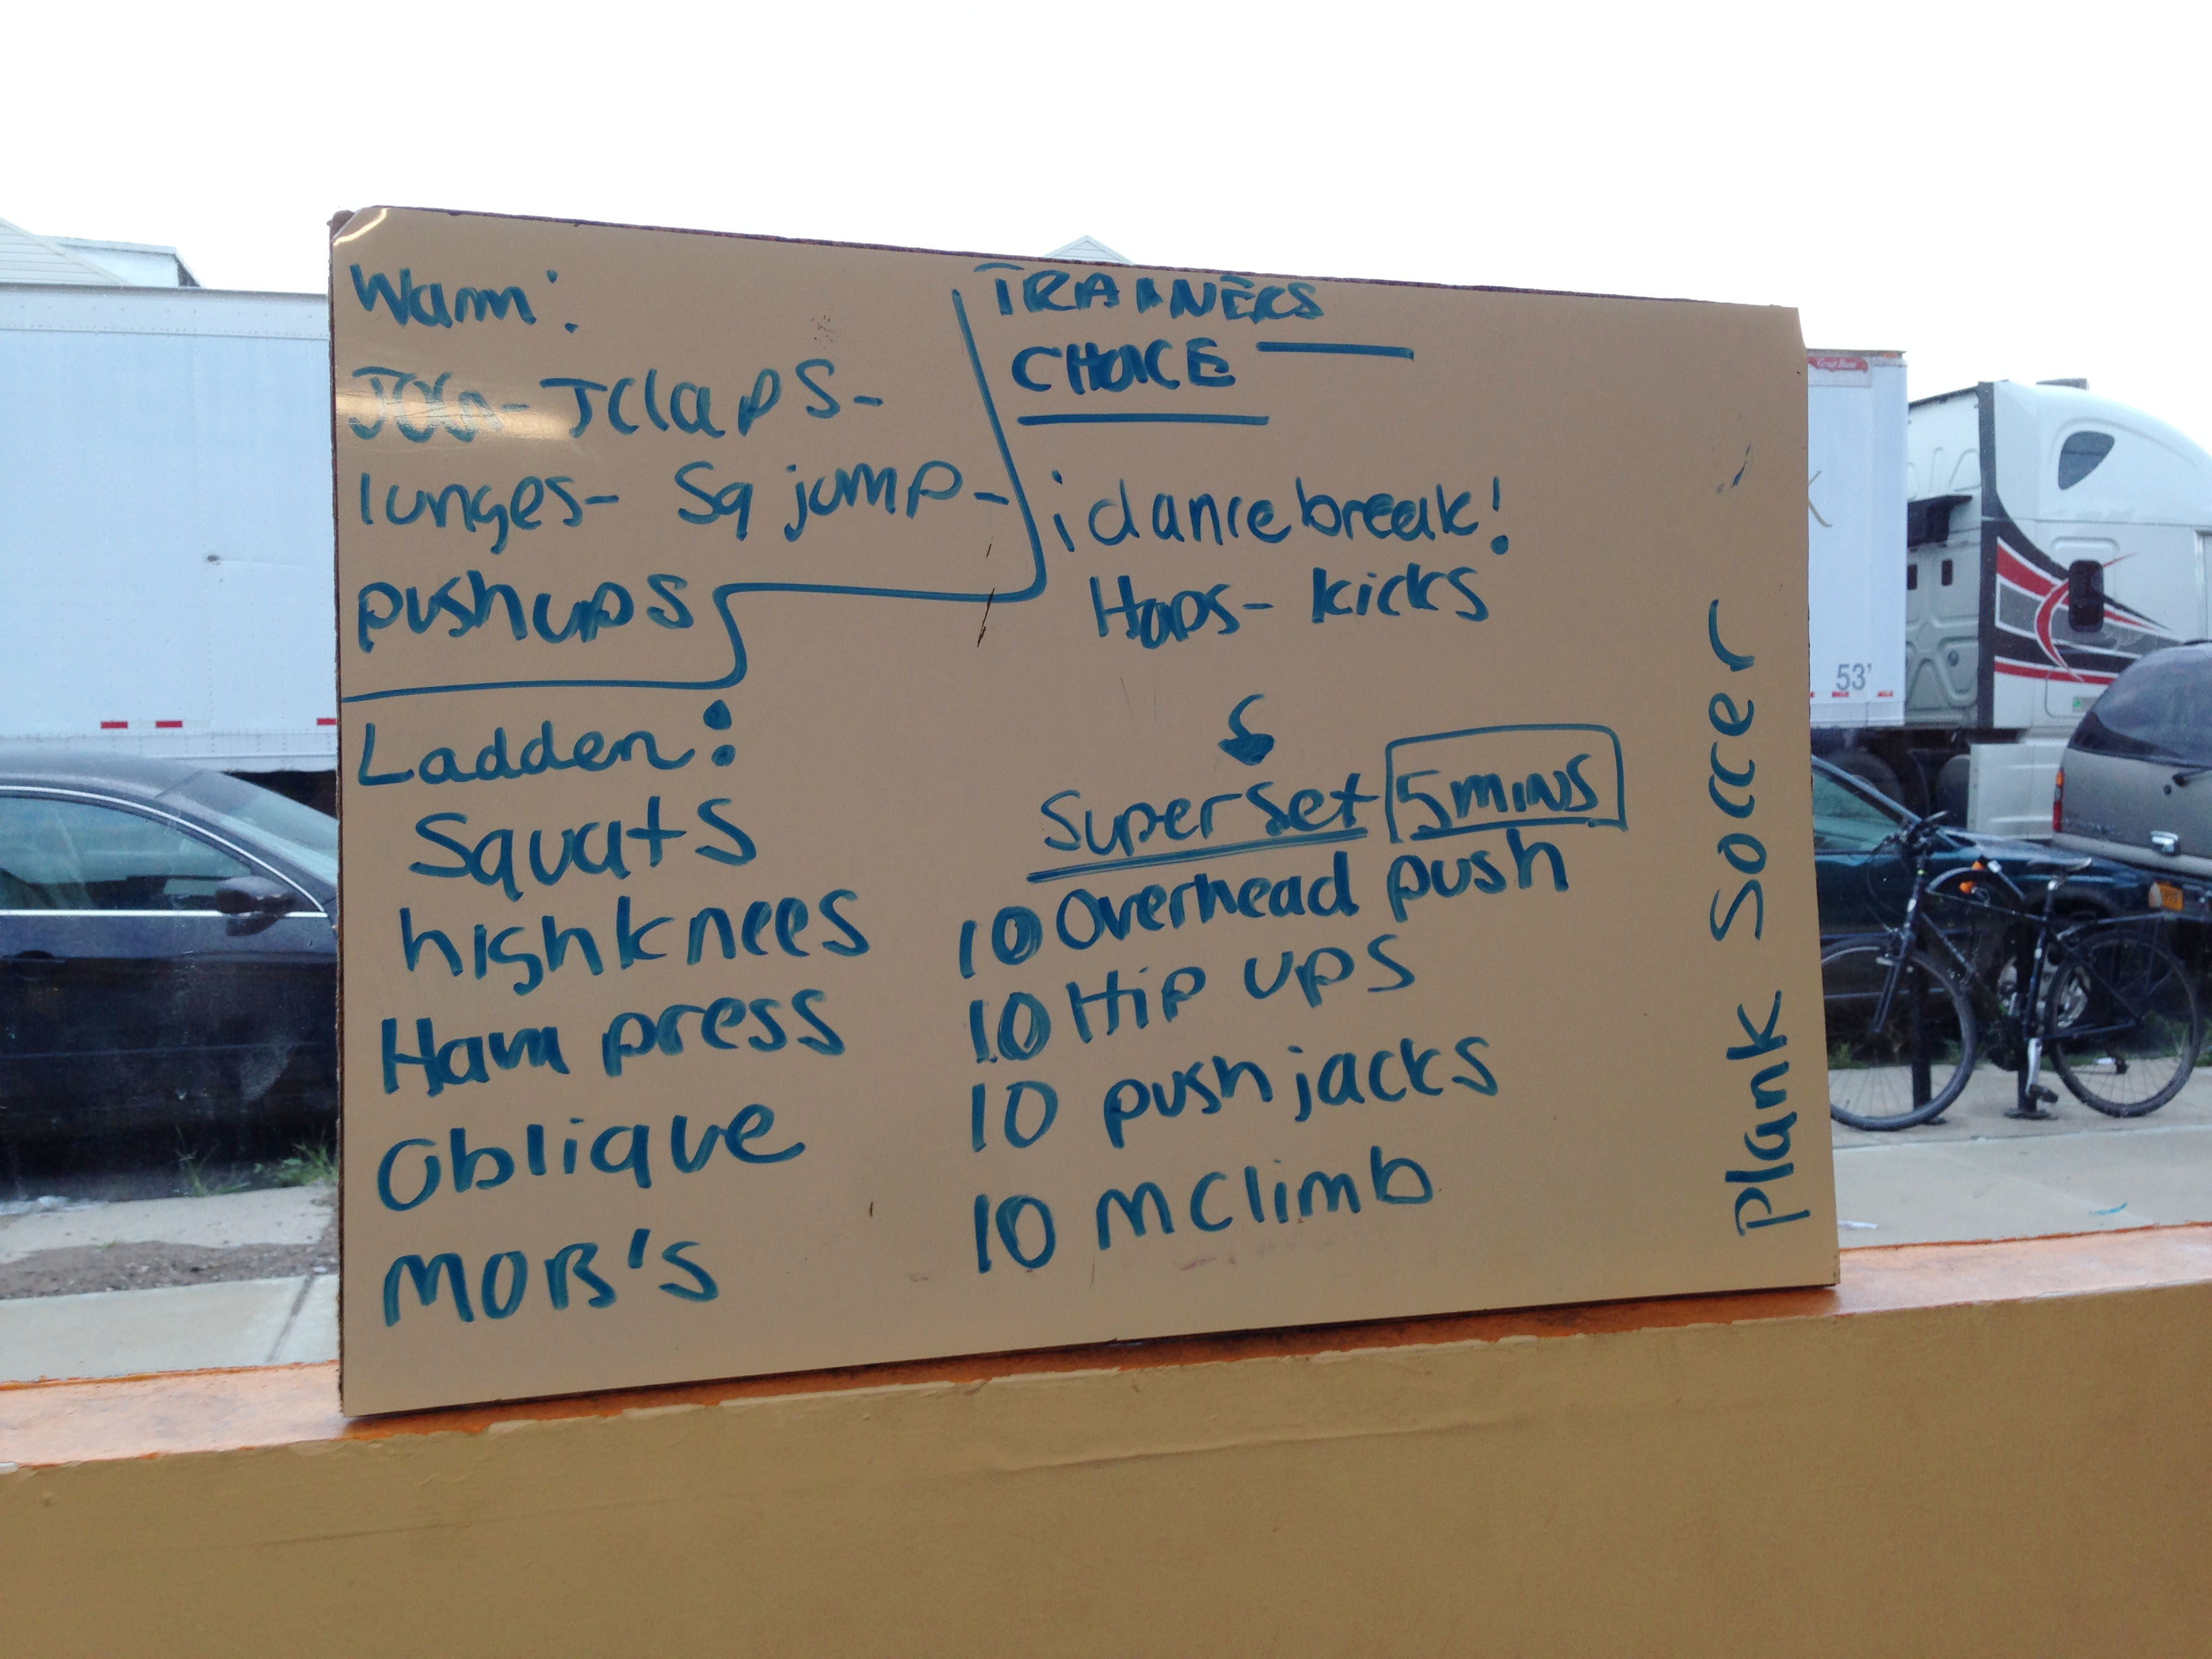 Warm:
JOG- Jclaps-
lunges- Sq jump-
pushups
Ladder:
Squats
highknees
Ham press
Oblique
MOB's
TRAINERS
CHOICE
¡dancebreak!
Hops- kicks
Superset 5 MINS
10 Overhead push
10 Hip ups
10 push jacks
10 M Climb
Plank Soccer
53'